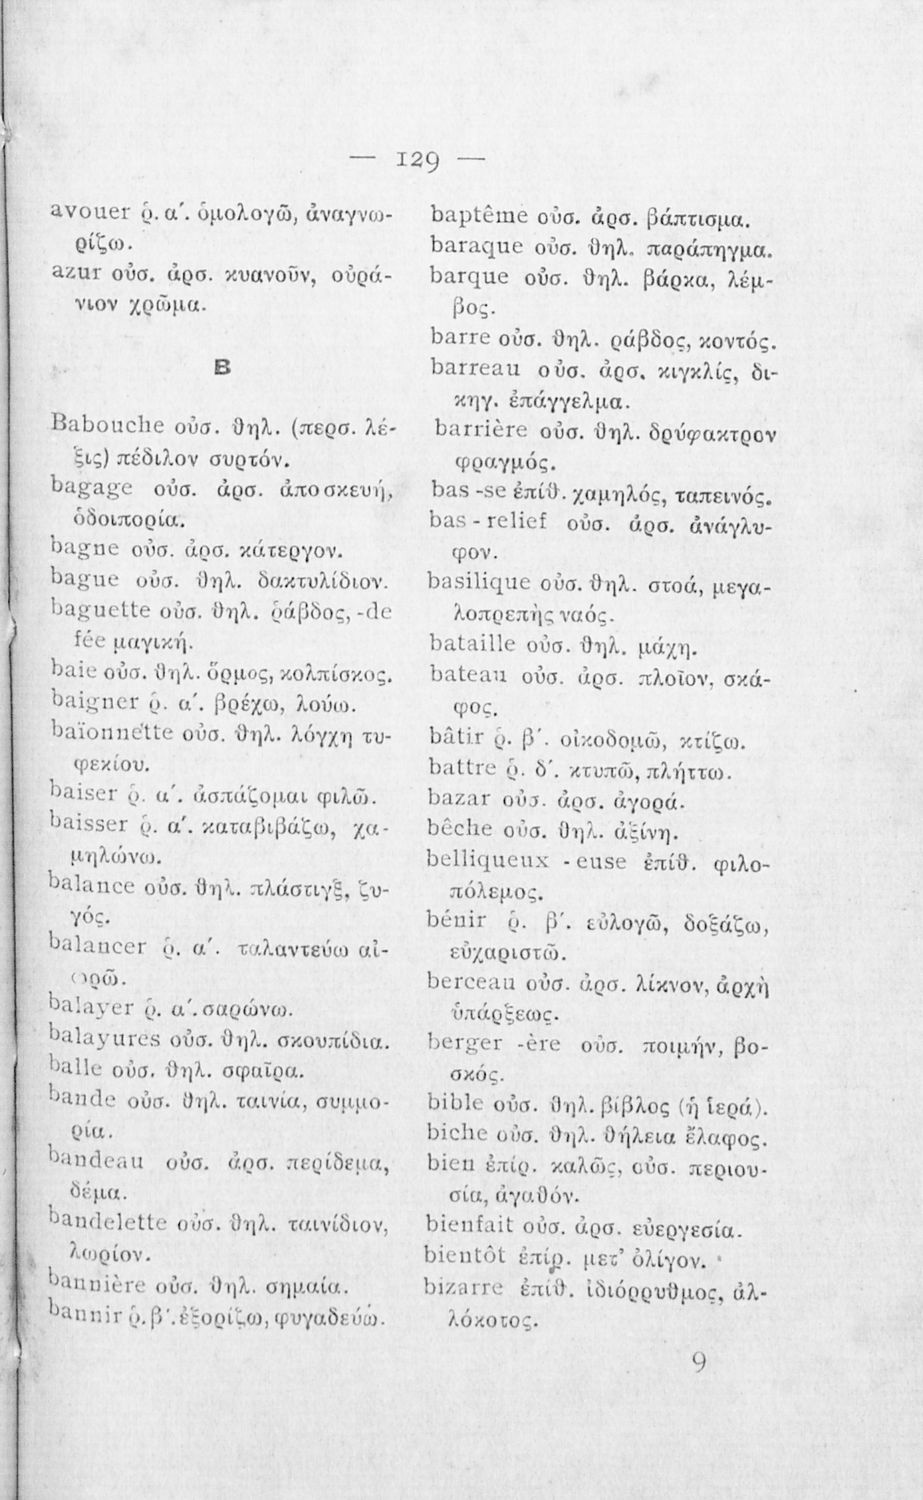 — 129 —
avouer ῥ. α΄. ὁμολογῶ, ἀναγνω-
ρίζω.
azur οὐσ. ἀρσ. κυανοῦν, οὐρά-
νιον χρῶμα.
B
Babouche οὐσ. θηλ. (περσ. λέ-
ξις) πέδιλον συρτόν.
bagage οὐσ. ἀρσ. ἀποσκευή,
ὁδοιπορία.
bagne οὐσ. ἀρσ. κάτεργον.
bague οὐσ. θηλ. δακτυλίδιον.
baguette οὐσ. θηλ. ῥάβδος, -de
fée μαγική.
baie οὐσ. θηλ. ὅρμος, κολπίσκος.
baigner ῥ. α΄. βρέχω, λούω.
baïonnette οὐσ. θηλ. λόγχη τυ-
φεκίου.
baiser ῥ. α΄. ἀσπάζομαι φιλῶ.
baisser ῥ. α΄. καταβιβάζω, χα-
μηλώνω.
balance οὐσ. θηλ. πλάστιγξ, ζυ-
γός.
balancer ῥ. α΄. ταλαντεύω αἰ-
ωρῶ.
balayer ῥ. α΄. σαρώνω.
balayures οὐσ. θηλ. σκουπίδια.
balle οὐσ. θηλ. σφαῖρα.
bande οὐσ. θηλ. ταινία, συμμο-
ρία.
bandeau οὐσ. ἀρσ. περίδεμα,
δέμα.
bandelette οὐσ. θηλ. ταινίδιον,
λωρίον.
bannière οὐσ. θηλ. σημαία.
bannir ῥ. β΄. ἐξορίζω, φυγαδεύω.
baptême οὐσ. ἀρσ. βάπτισμα.
baraque οὐσ. θηλ. παράπηγμα.
barque οὐσ. θηλ. βάρκα, λέμ-
βος.
barre οὐσ. θηλ. ράβδος, κοντός.
barreau οὐσ. ἀρσ. κιγκλίς, δι-
κηγ. ἐπάγγελμα.
barrière οὐσ. θηλ. δρύφακτρον
φραγμός.
bas -se ἐπίθ. χαμηλός, ταπεινός.
bas - relief οὐσ. ἀρσ. ἀνάγλυ-
φον.
basilique οὐσ. θηλ. στοά, μεγα-
λοπρεπὴς ναός.
bataille οὐσ. θηλ. μάχη.
bateau οὐσ. ἀρσ. πλοῖον, σκά-
φος.
bâtir ῥ. β΄. οἰκοδομῶ, κτίζω.
battre ῥ. δ΄. κτυπῶ, πλήττω.
bazar οὐσ. ἀρσ. ἀγορά.
bêche οὐσ. θηλ. ἀξίνη.
belliqueux - euse ἐπίθ. φιλο-
πόλεμος.
bénir ῥ. β΄. εὐλογῶ, δοξάζω,
εὐχαριστῶ.
berceau οὐσ. ἀρσ. λίκνον, ἀρχὴ
ὑπάρξεως.
berger -ère οὐσ. ποιμήν, βο-
σκός.
bible οὐσ. θηλ. βίβλος (ἡ ἱερά).
biche οὐσ. θηλ. θήλεια ἔλαφος.
bien ἐπίρ. καλῶς, οὐσ. περιου-
σία, ἀγαθόν.
bienfait οὐσ. ἀρσ. εὐεργεσία.
bientôt ἐπίρ. μετ' ὀλίγον.
bizarre ἐπίθ. ἰδιόρρυθμος, ἀλ-
λόκοτος.
9